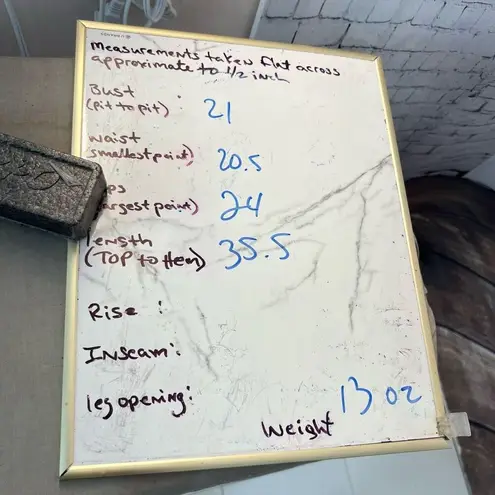 Measurements taken flat across
approximate to 1/2 inch
Bust :
(pit to pit) 21
waist
smallest point) 20.5
ps
argest point) 24
length
(TOP to Hem) 35.5
Rise :
Inseam :
leg opening: 13 oz
Weight